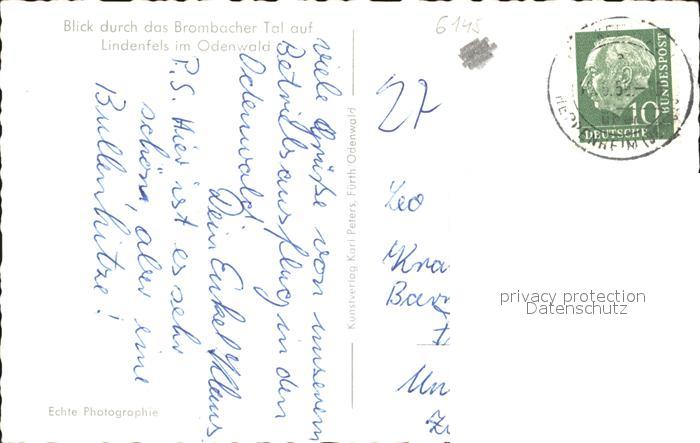 Blick durch das Brombacher Tal auf
Lindenfels im Odenwald
6145
viele Grüße von unserem
Betriebsausflug in den
Odenwald!
Dein Enkel Klaus.
P.S. Hier ist es sehr
schön, aber eine
Bullenhitze!
Echte Photographie
Kunstverlag Karl Peters, Fürth Odenwald
Leo
Kra
Bay
Un
privacy protection
Datenschutz
10
DEUTSCHE
BUNDESPOST